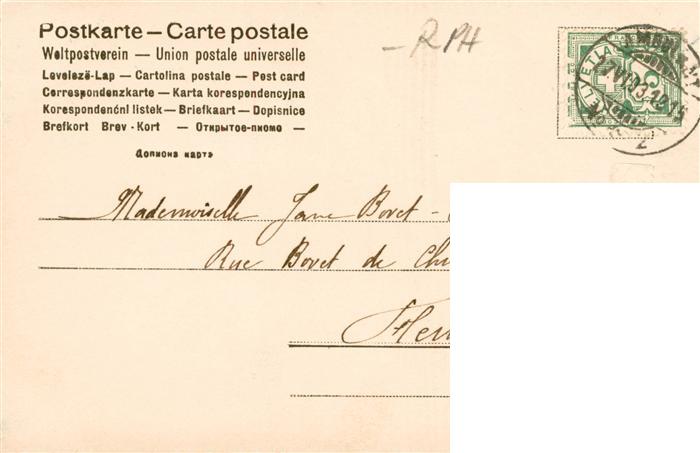 Postkarte – Carte postale
Weltpostverein — Union postale universelle
Levelezö-Lap — Cartolina postale — Post card
Correspondenzkarte — Karta korespondencyjna
Korespondenční listek — Briefkaart — Dopisnice
Brefkort Brev-Kort — Открытое-письмо —
Дописна карта
– RPH
HELVETIA
7.VI.03.
2
Mademoiselle Jane Bovet -
Rue Bovet de